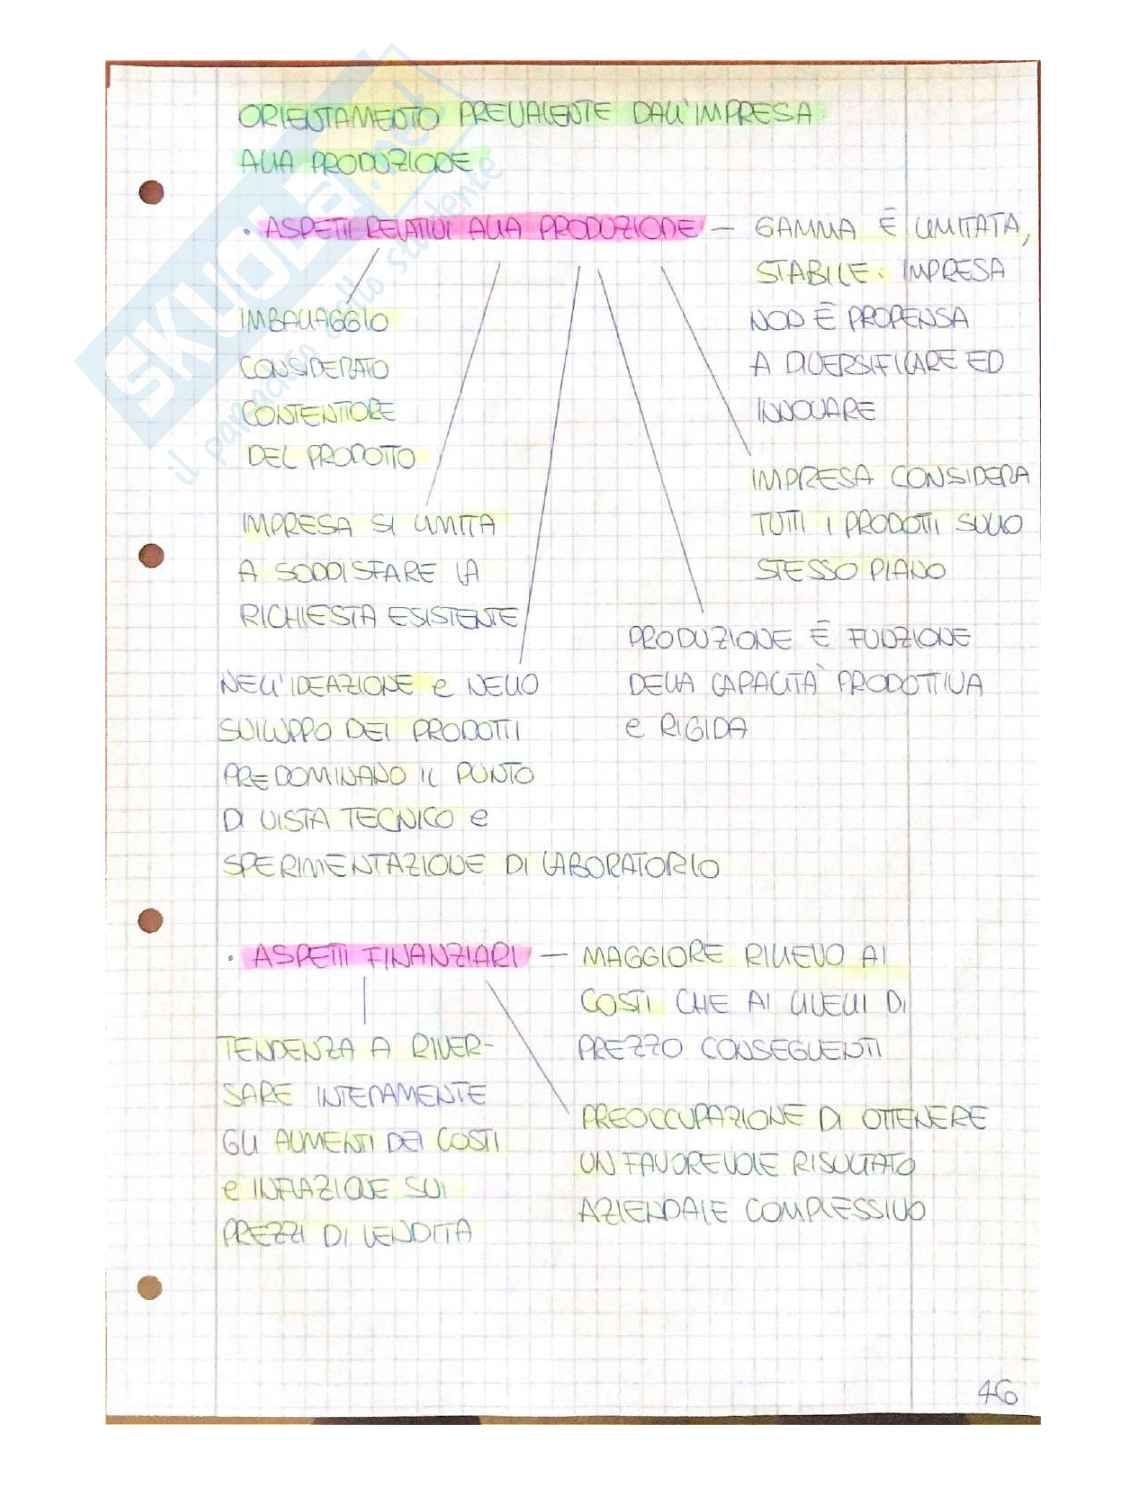 ORIENTAMENTO PREVALENTE DALL'IMPRESA
ALLA PRODUZIONE
· ASPETTI RELATIVI ALLA PRODUZIONE — GAMMA È LIMITATA,
STABILE. IMPRESA
NON È PROPENSA
A DIVERSIFICARE ED
INNOVARE
IMBALLAGGIO
CONSIDERATO
CONTENITORE
DEL PRODOTTO
IMPRESA CONSIDERA
TUTTI I PRODOTTI SULLO
STESSO PIANO
IMPRESA SI LIMITA
A SODDISFARE LA
RICHIESTA ESISTENTE
PRODUZIONE È FUNZIONE
DELLA CAPACITÀ PRODUTTIVA
e RIGIDA
NELL'IDEAZIONE e NELLO
SVILUPPO DEI PRODOTTI
PREDOMINANO IL PUNTO
DI VISTA TECNICO e
SPERIMENTAZIONE DI LABORATORIO
· ASPETTI FINANZIARI — MAGGIORE RILIEVO AI
COSTI CHE AI LIVELLI DI
PREZZO CONSEGUENTI
TENDENZA A RIVER-
SARE INTERAMENTE
GLI AUMENTI DEI COSTI
e INFLAZIONE SUI
PREZZI DI VENDITA
PREOCCUPAZIONE DI OTTENERE
UN FAVOREVOLE RISULTATO
AZIENDALE COMPLESSIVO
46
SKUOLA.net
il paradiso dello studente